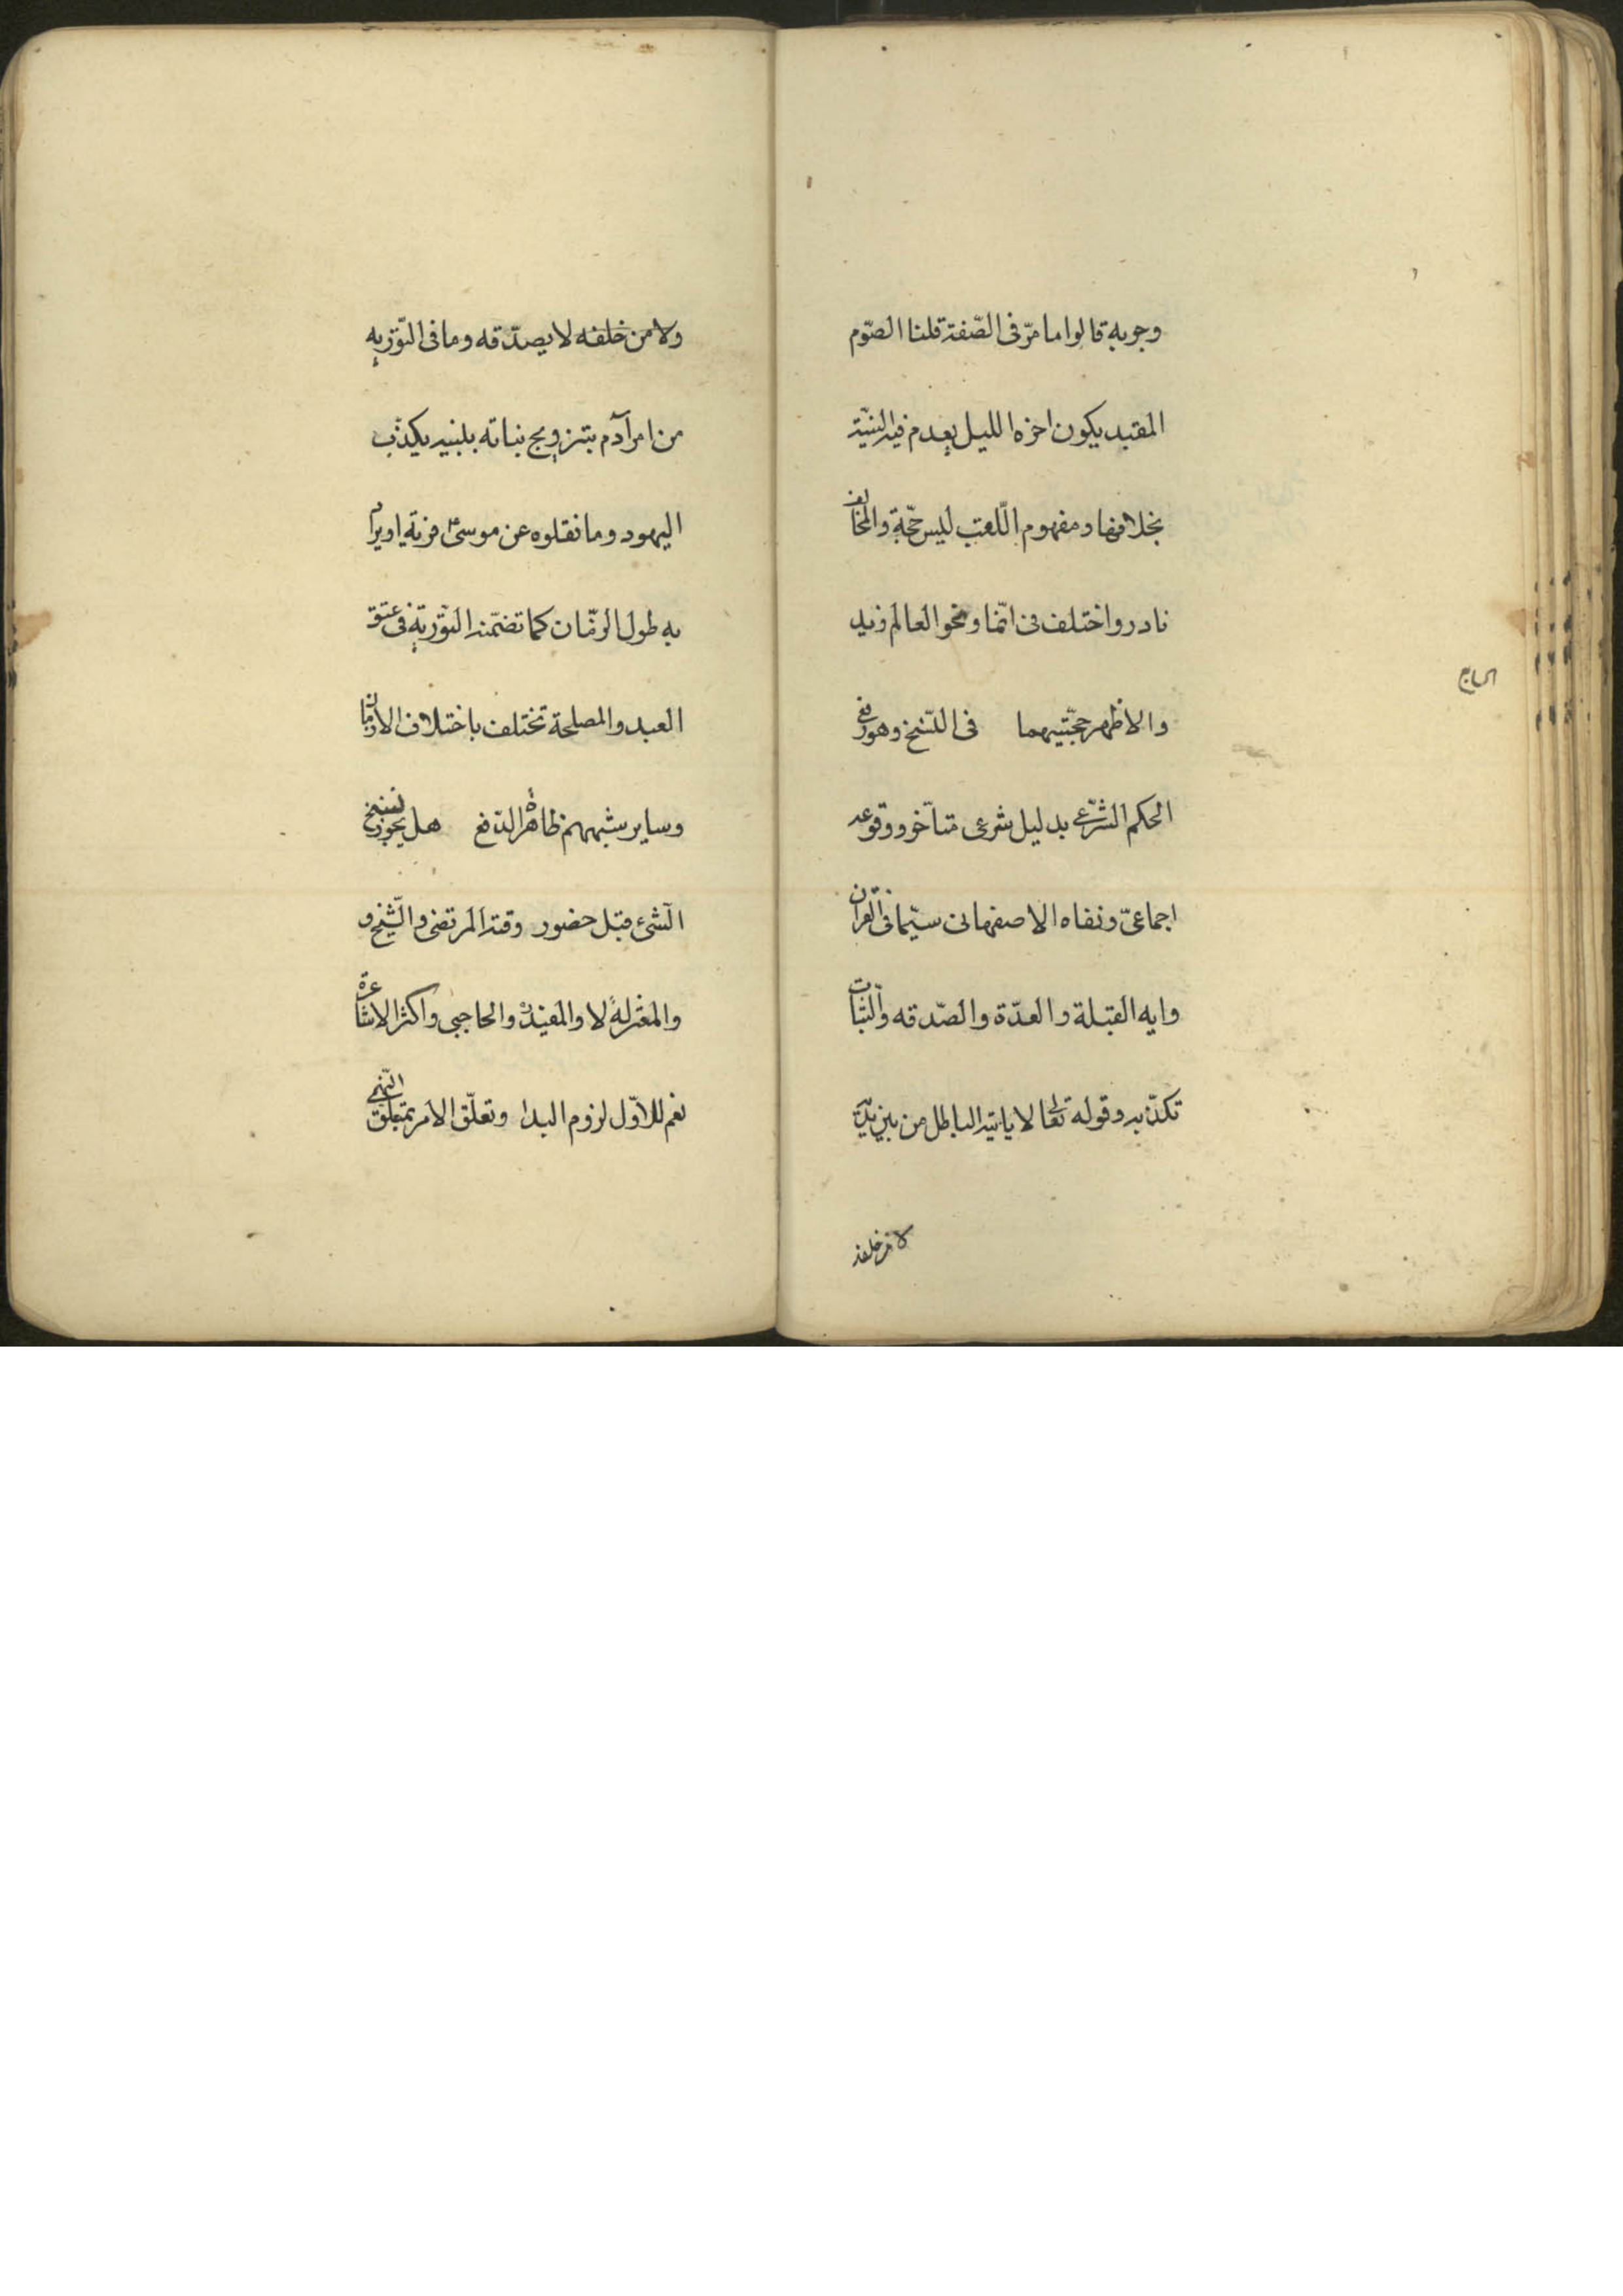 وجوبه قالوا ما مرّ فى الصّفة قلنا الصّوم
المقيد يكون اخره الليل يعدم فيه لنيّته
بخلافها و مفهوم اللّقب ليس حجّة والمخالف
نادر واختلف فى انّما و نحو العالم زيد
والاظهر حجّيتهما فى النّسخ وهو رفع
الحكم الشّرعى بدليل شرعى متأخر ووقوعه
اجماعىّ ونفاه الاصفهانى سيّما فى القران
وايه القبلة والعدّة والصّدقه والثّبات
تكذّبه وقوله تعالى لا ياتيه الباطل من بين يديه
لا من خلفه
ولا من خلفه لا يصدّقه وما فى التّورية
من امر آدم بتزويج بناته بلبنيه يكذّب
اليهود وما نقلوه عن موسىٰ فرية او يراد
به طول الزمّان كما تضمّنه التّورية فى عتق
العبد والمصلحة تختلف باختلاف الازمان
وساير شبههم ظاهرة الدّفع هل يجوز نسخ
الشّئ قبل حضور وقته المرتضى والشّيخ و
والمعتزلة لا والمفيد والحاجبى واكثر الاشاعرة
نعم للاوّل لزوم البدا وتعلّق الامر بمتعلّق النّهى